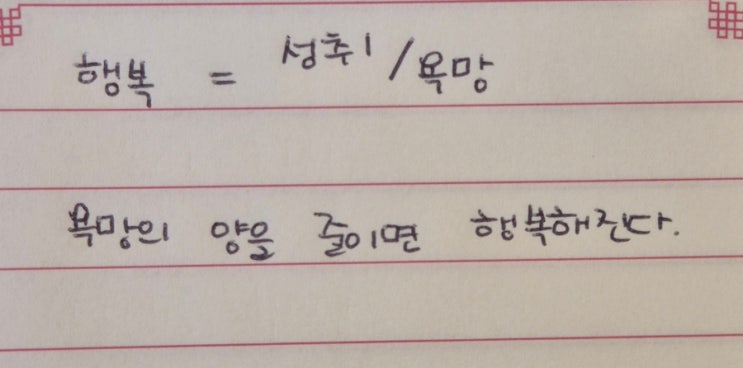 행복 = 성취 / 욕망
욕망의 양을 줄이면 행복해진다.